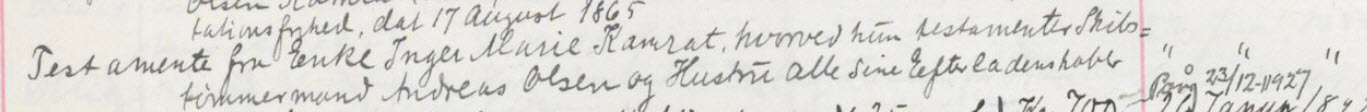 tationsfrihed, dat 17 August 1865
Testamente fra Enke Inger Marie Kamrat, hvorved hun testamenter Skibs=
tømmermand Andreas Olsen og Hustru alle sine Efterladenskaber " " "
23/12-1927
Kr. 700